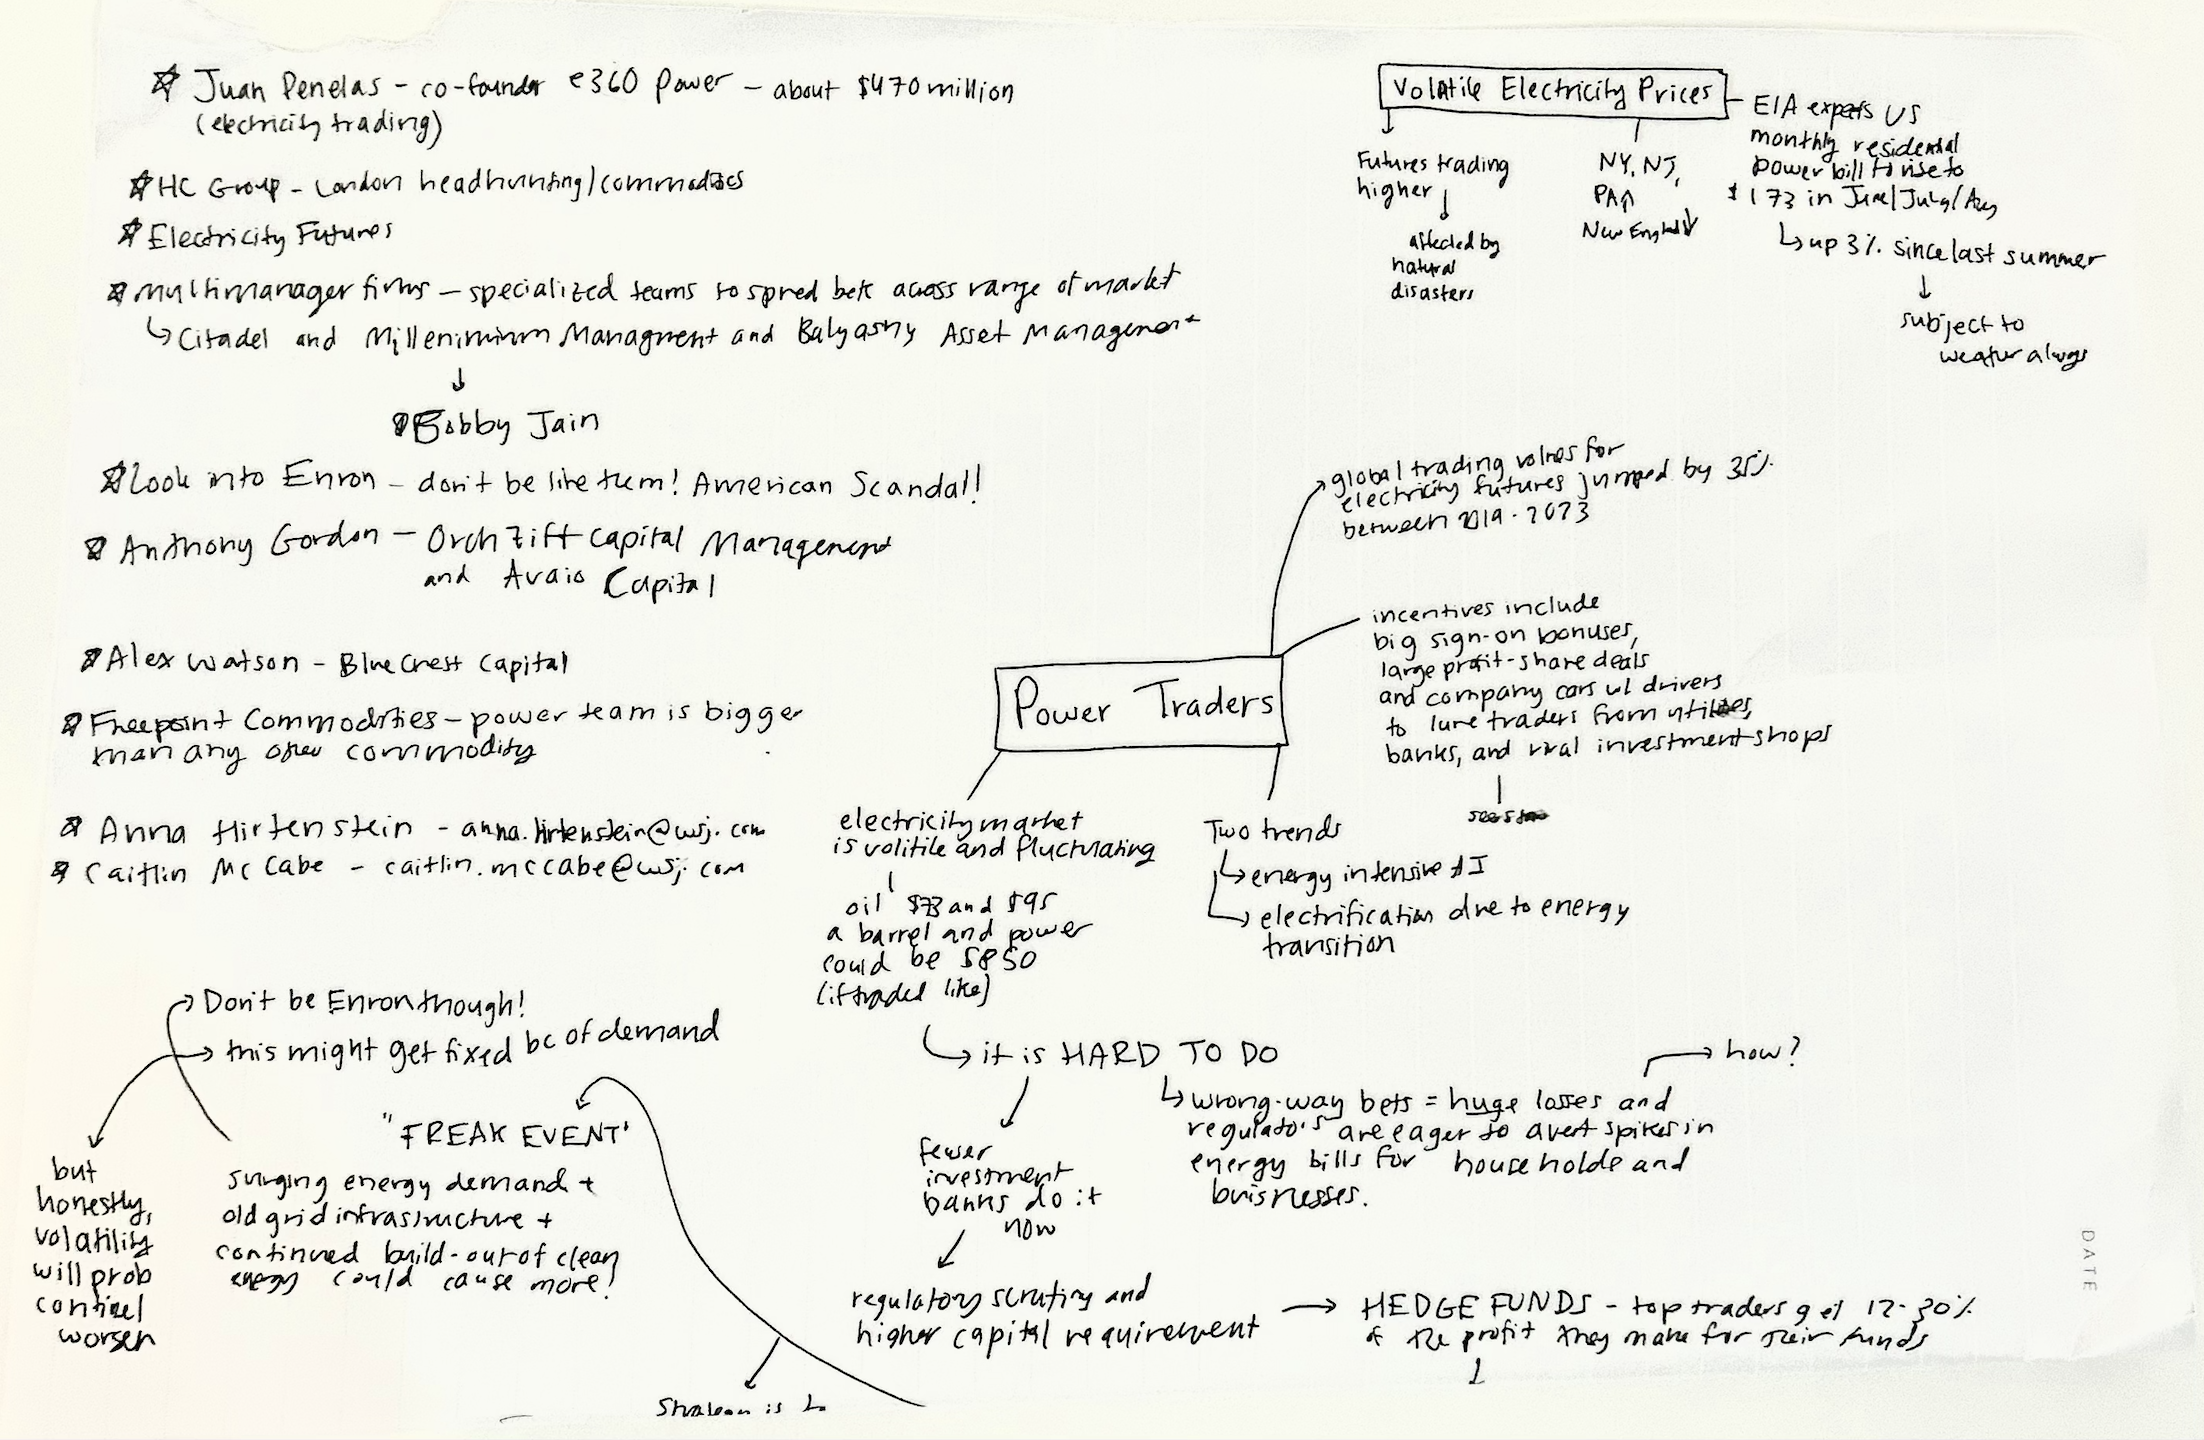 Juan Penelas - co-founder e360 power - about $470 million
(electricity trading)
HC Group - London headhunting/commodities
Electricity Futures
Multimanager firms - specialized teams to spred bets across range of market
Citadel and Millenimium Managment and Balyasny Asset Management
Bobby Jain
Look into Enron - don't be like them! American Scandal!
Anthony Gordon - Orch Ziff Capital Management
and Avaio Capital
Alex Watson - BlueCrest Capital
Freepoint Commodities - power team is bigger
than any other commodity
Anna Hirtenstein - anna.hirtenstein@wsj.com
Caitlin McCabe - caitlin.mccabe@wsj.com
Volatile Electricity Prices
Futures trading
higher
affected by
natural
disasters
NY, NJ,
PA↑
New England↓
EIA expects US
monthly residential
power bill to rise to
$173 in June/July/Aug
up 3% since last summer
subject to
Power Traders
global trading volmes for
electricity futures jumped by 35%
between 2019-2023
incentives include
big sign-on bonuses,
large profit-share deals
and company cars w/ drivers
to lure traders from utilities,
banks, and rival investment shops
electricity market
is volitile and fluctuating
oil $73 and $95
a barrel and power
could be $850
(if traded like)
Two trends
energy intensive AI
electrification due to energy
transition
it is HARD TO DO
wrong-way bets = huge losses and
regulators are eager to avert spikes in
energy bills for households and
buisnesses.
how?
fewer
investment
banks do it
now
regulatory scrutiny and
higher capital requirement
HEDGE FUNDS - top traders get 12-30%
of the profit they make for their funds
Don't be Enron though!
this might get fixed bc of demand
but
honestly,
volatility
will prob
worsen
"FREAK EVENT"
surging energy demand +
old grid infrastructure +
continued build-out of clean
energy could cause more!
is
DATE